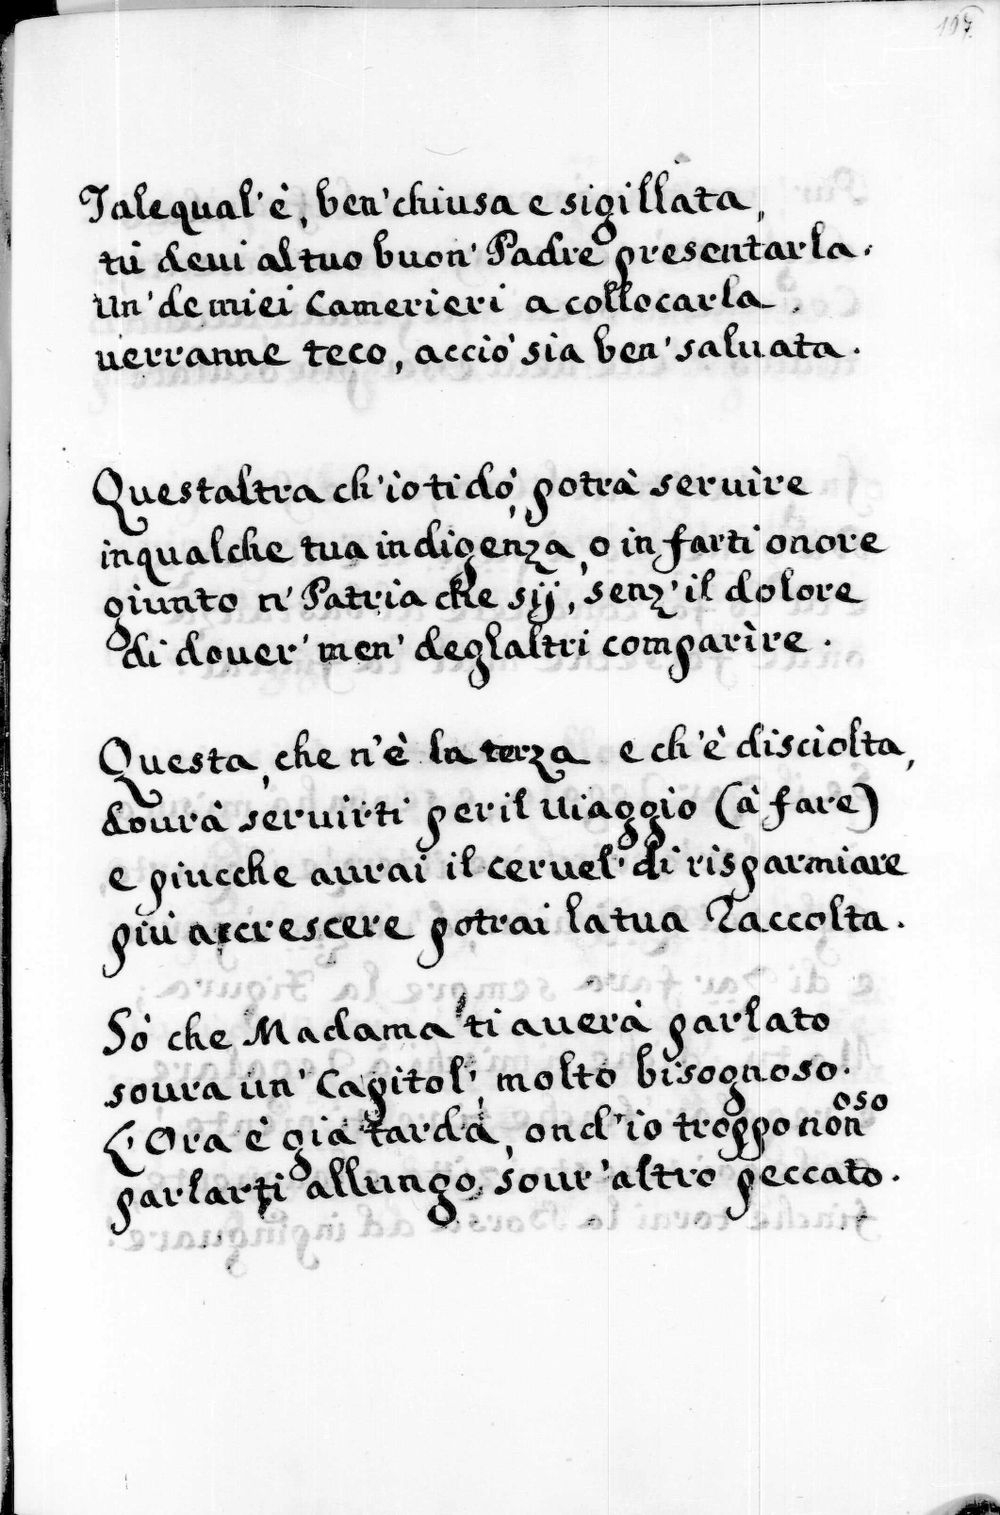 107.
Talequal' è, ben' chiusa e sigillata,
tù deui al tuo buon' Padre presentarla.
Un' de miei Camerieri a collocarla
uerranne teco, acciò sia ben' saluata.
Questaltra ch'io ti dò, potrà seruìre
inqualche tua indigenza, o in farti onore
giunto n' Patria che sij, senz' il dolore
di douer' men' deglaltri comparìre.
Questa, che n'è la terza e ch'è disciolta,
dourà seruirti per il uiaggio (à fare)
e piucche aurai il ceruel' di risparmiare
più accrescere potrai la tua Raccolta.
Sò che Madama ti auerà parlato
soura un' Capitol', molto bisognoso.
L'Ora è già tarda, ond'io troppo non oso
parlarti allungo, sour' altro peccato.